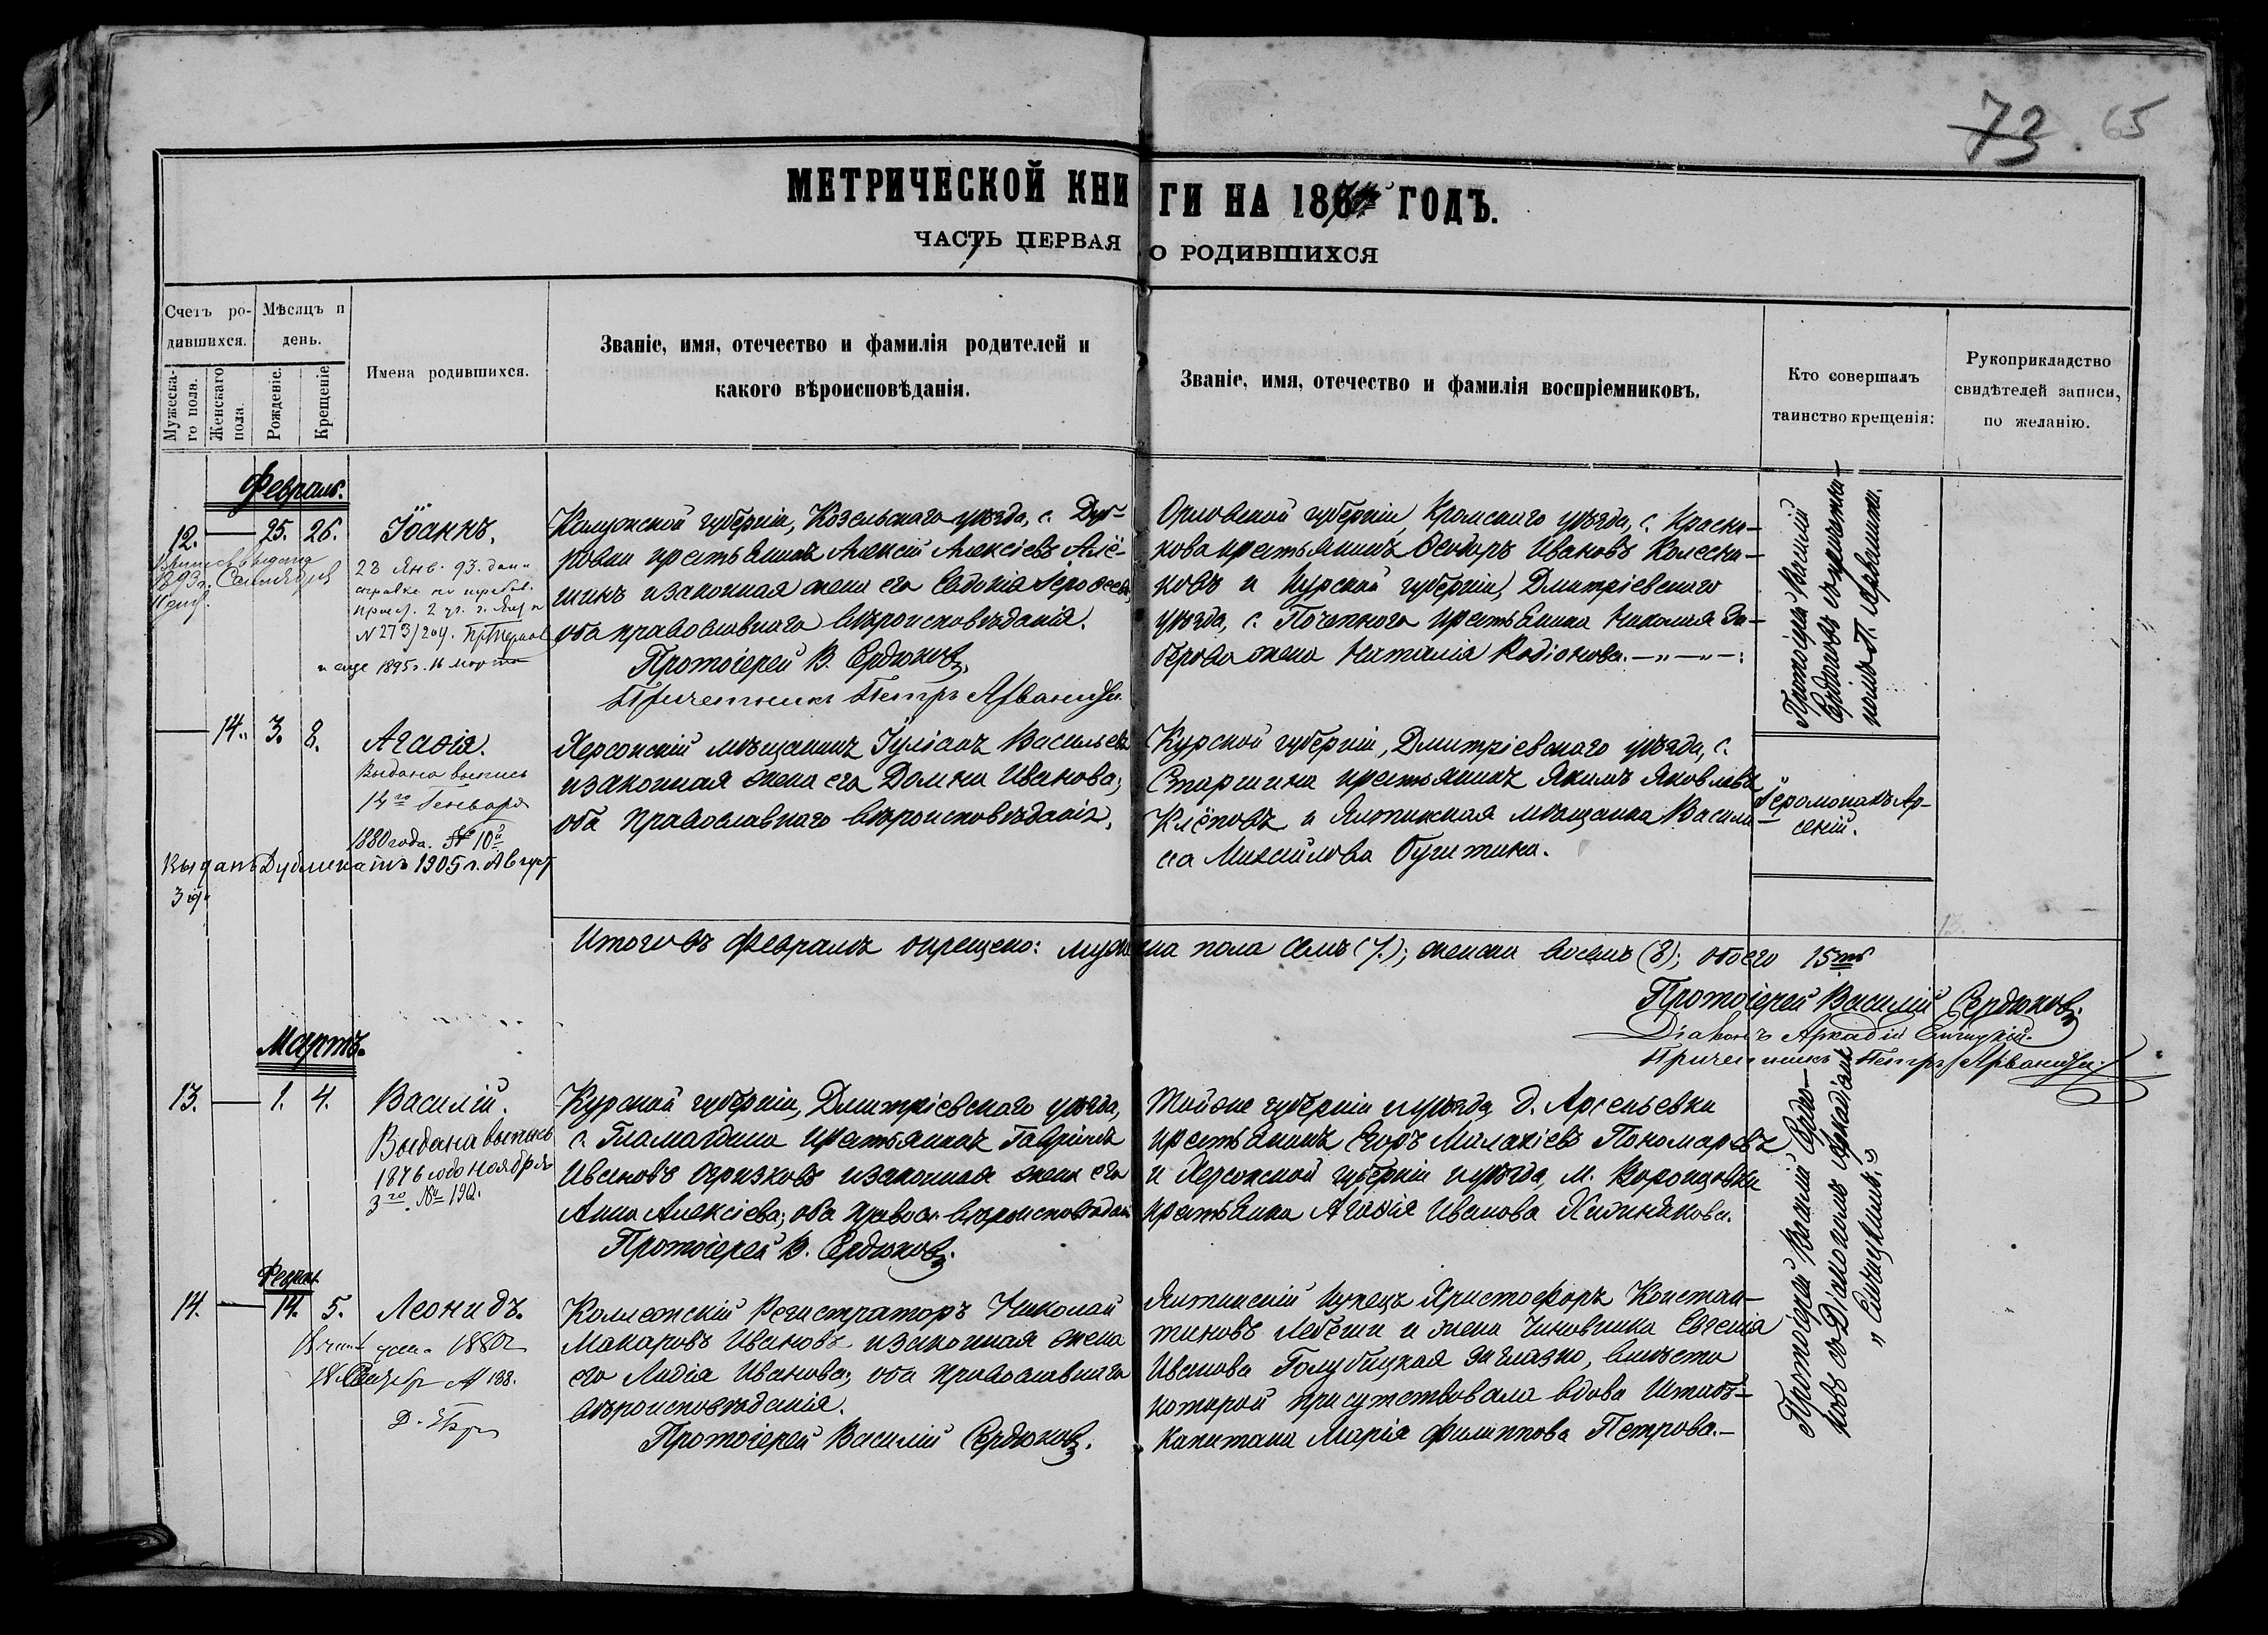 73. 65
МЕТРИЧЕСКОЙ КНИГИ НА 187 ГОДЪ.
ЧАСТЬ ПЕРВАЯ О РОДИВШИХСЯ
Счетъ родившихся.
Мужеска-го пола.
Женскаго пола.
Мѣсяцъ и день.
Рожденіе.
Крещеніе.
Имена родившихся.
Званіе, имя, отечество и фамилія родителей и
какого вѣроисповѣданія.
Званіе, имя, отечество и фамилія воспріемниковъ.
Кто совершалъ
таинство крещенія:
Рукоприкладство
свидѣтелей записи,
по желанію.
Февраль.
12. — 25. 26. Іоаннъ.
23 Янв. 93. дана
справка по
№ 273/204.
и еще 1895 г. 16 марта
Калужской губерніи, Козельскаго уѣзда, с. Дуб-
ровки крестьянинъ Алексій Алексіевъ Алё-
шинъ и законная жена его Евдокія
оба православнаго вѣроисповѣданія.
Протоіерей В. Сердюковъ.
Причетникъ Петръ Арваниди
Орловской губерніи Кромскаго уѣзда, с. Красни-
кова крестьянинъ Ѳеодоръ Ивановъ Колесни-
ковъ и Курской губерніи, Дмитріевскаго
уѣзда, с. крестьянина Николая
жена Наталія Родіонова. —"—"—:
Протоіерей Василій
Сердюковъ съ причетни-
комъ П. Арваниди.
— 14. 3. 8. Агаѳія.
Выдана выпись
14го Генваря
1880 года. № 10й
Выданъ Дубликатъ 1905 г. Август
3 д.
Херсонскій мѣщанинъ Іуліанъ Васильевъ
и законная жена его Домна Иванова;
оба православнаго вѣроисповѣданія.
Курской губерніи, Дмитріевскаго уѣзда, с.
Старшина крестьянинъ Якимъ Яковлевъ
Клёповъ и Ялтинская мѣщанка Васили-
са Михаилова Бугитина.
Іеромонахъ Ар-
сеній.
Итого въ Февралѣ окрещено: мужеска пола семь (7.); женска восемь (8); обоего 15ть
Протоіерей Василій Сердюковъ.
Діаконъ Аркадій
Причетникъ Петръ Арваниди
Мартъ.
13. — 1. 4. Василій.
Выдана выпись
1876 года ноября
3го. № 192.
Курской губерніи, Дмитріевскаго уѣзда,
с. крестьянинъ Гавріилъ
Ивановъ Огризковъ и законная жена его
Анна Алексіева; оба правос. вѣроисповѣдан
Протоіерей В. Сердюковъ.
Тойже губерніи и уѣзда, д. Арсеньевки
крестьянинъ Егоръ Малахіевъ Пономаревъ
и Херсонской губерніи и уѣзда, м. Воронцовки
крестьянка Агаѳія Иванова
Протоіерей Василій Сердю-
ковъ съ Діакономъ Аркадіемъ
Феврал.
14. — 14. 5. Леонидъ.
1880 г.
№ 138.
Коллежскій Регистраторъ Николай
Макаровъ Ивановъ и законная жена
его Лидія Иванова; оба православнаго
вѣроисповѣданія.
Протоіерей Василій Сердюковъ.
Ялтинскій Купецъ Христофоръ Констан-
тиновъ Лебеши и жена Чиновника Евгенія
Иванова Голубицкая заглазно, вмѣсто
которой присутствовала вдова Штабъ-
Капитана Марія Филиппова Петрова.—